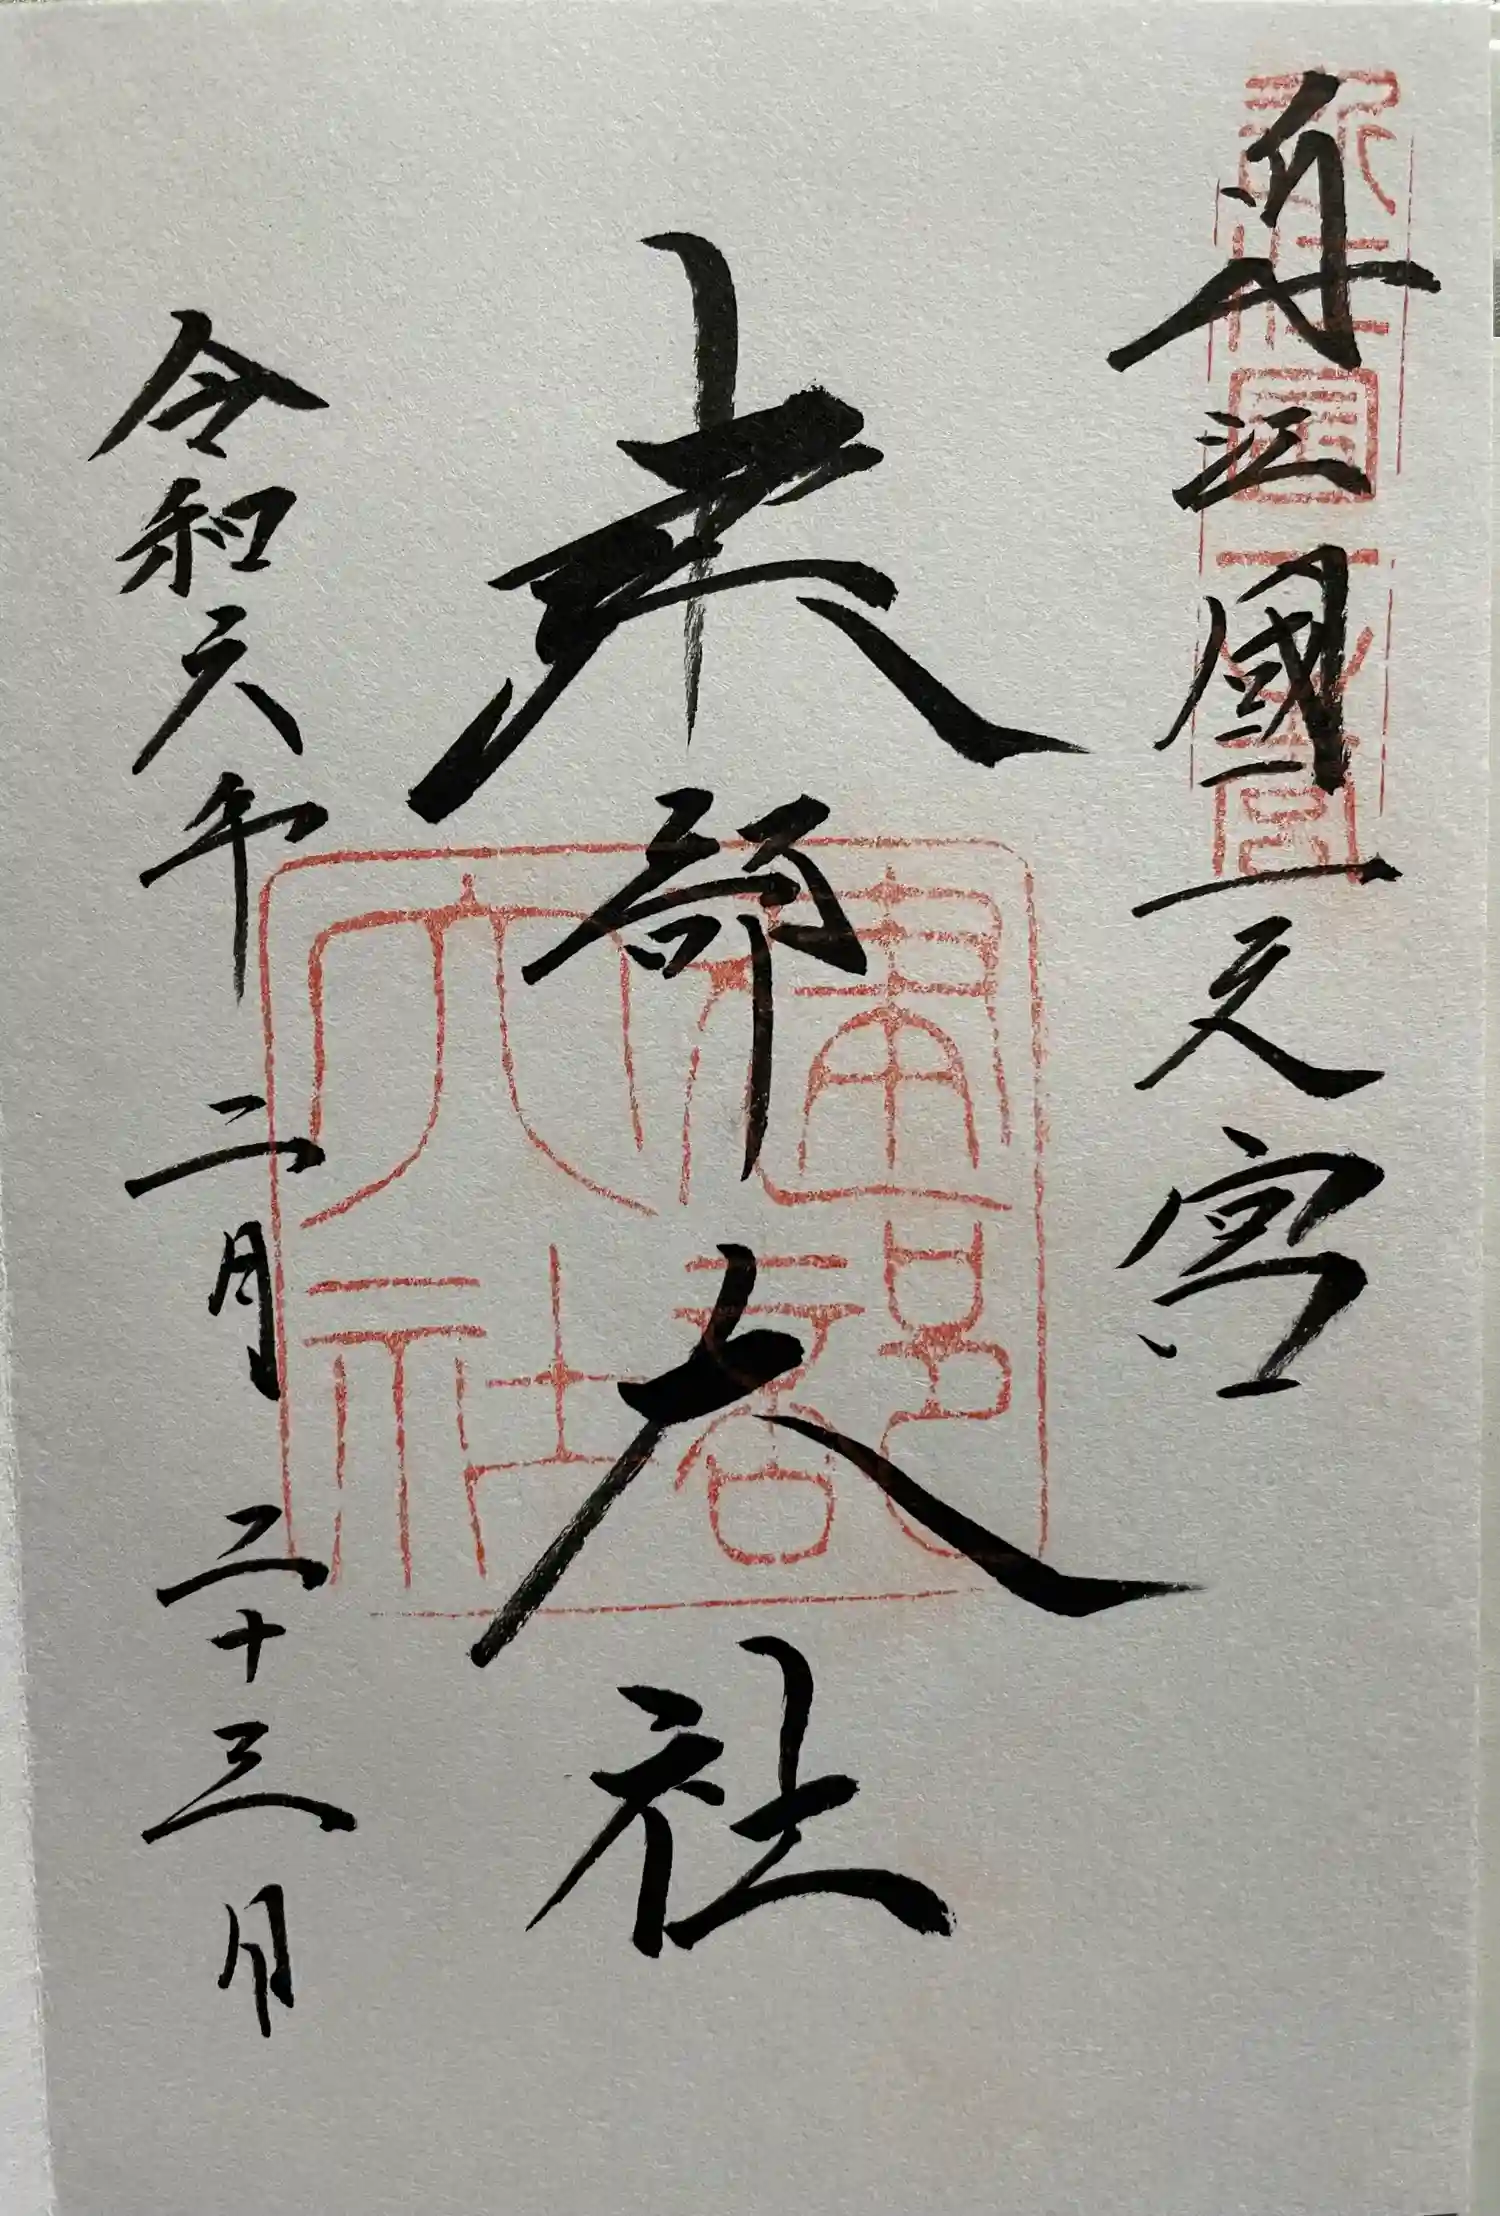 近江國一之宮
建部大社
令和六年二月二十三日
建部大社